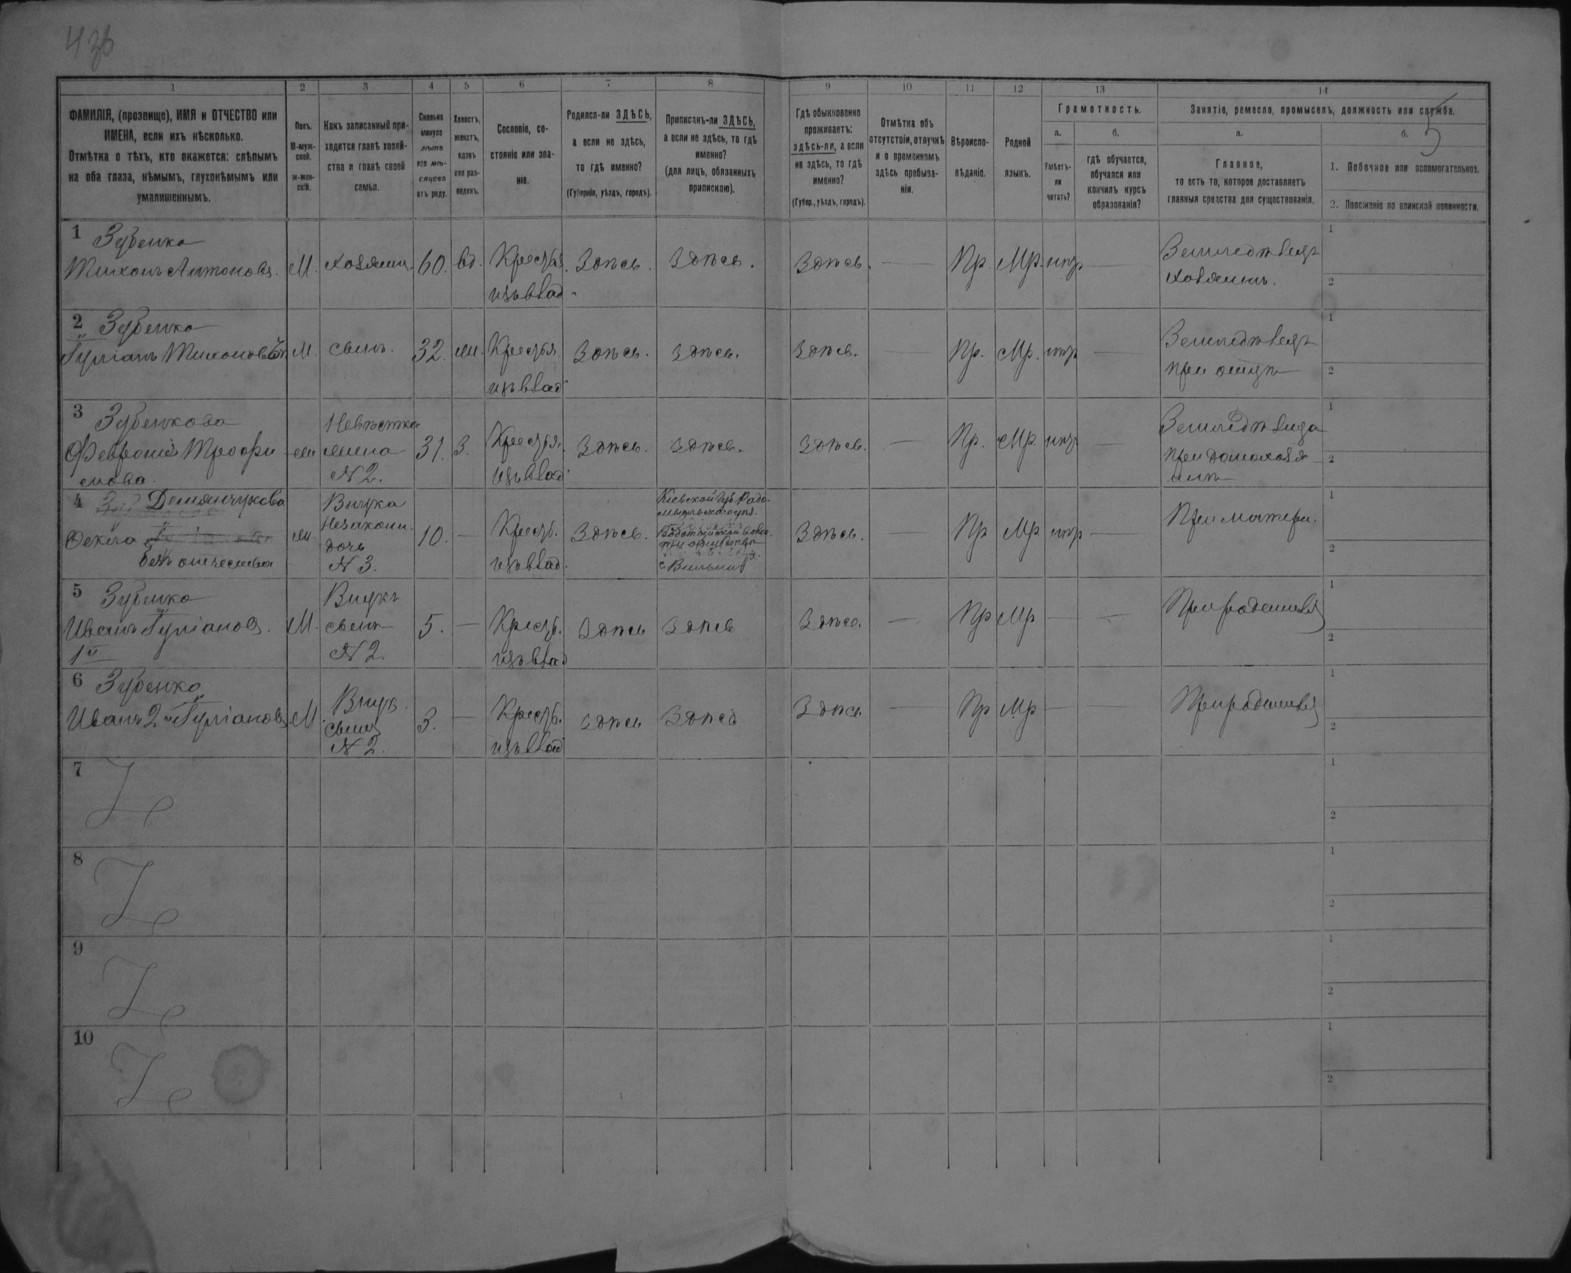 436
5
1
2
3
4
5
6
7
8
9
10
11
12
13
14
ФАМИЛІЯ, (прозвище), ИМЯ и ОТЧЕСТВО или
ИМЕНА, если ихъ нѣсколько.
Отмѣтка о тѣхъ, кто окажется: слѣпымъ
на оба глаза, нѣмымъ, глухонѣмымъ или
умалишеннымъ.
Полъ.
М-муж-
ской.
ж-жен-
скій.
Какъ записанный при-
ходится главѣ хозяй-
ства и главѣ своей
семьи.
Сколько
минуло
лѣтъ
или мѣ-
сяцевъ
отъ роду.
Холостъ,
женатъ,
вдовъ
или раз-
веденъ.
Сословіе, со-
стояніе или зва-
ніе.
Родился-ли ЗДѢСЬ,
а если не здѣсь,
то гдѣ именно?
(Губернія, уѣздъ, городъ).
Приписанъ-ли ЗДѢСЬ,
а если не здѣсь, то гдѣ
именно?
(для лицъ, обязанныхъ
припискою).
Гдѣ обыкновенно
проживаетъ:
здѣсь-ли, а если
не здѣсь, то гдѣ
именно?
(Губер., уѣздъ, городъ).
Отмѣтка объ
отсутствіи, отлучкѣ
и о временномъ
здѣсь пребыва-
ніи.
Вѣроиспо-
вѣданіе.
Родной
языкъ.
Грамотность.
а.
Умѣетъ-
ли
читать?
б.
гдѣ обучается,
обучался или
кончилъ курсъ
образованія?
Занятіе, ремесло, промыселъ, должность или служба.
а.
Главное,
то есть то, которое доставляетъ
главныя средства для существованія.
б.
1. Побочное или вспомогательное.
2. Положеніе по воинской повинности.
1 Зубенко
Тихонъ Антоновъ. М. хозяинъ. 60. вд. Крестья. Здѣсь. Здѣсь. Здѣсь. — Пр. Мр. нѣтъ — Земледѣлецъ 1
изъ влад. хозяинъ. 2
2 Зубенко
Гуріанъ Тихоновъ М. сынъ. 32. жн. Крестья. Здѣсь. Здѣсь. Здѣсь. Пр. Мр. нѣтъ — Земледѣлецъ 1
изъ влад. при отцѣ 2
3 Зубенкова
Февронія Трофи- жн невѣстка жена 31. З. Крестья. Здѣсь. Здѣсь. Здѣсь. — Пр. Мр нѣтъ — Земледѣлица 1
мова. N 2. изъ влад. при домохозя- 2
4 Демянчукова
Фекла жн. Внучка 10. — Крестья. Здѣсь. Кіевской губ. Радо- Здѣсь. — Пр Мр нѣтъ — При матери. 1
без отчества незаконн. дочь N 3. изъ влад. мысльского у. 2
5 Зубенко
Иванъ Гуріановъ. М. Внукъ 5. — Крестья. Здѣсь Здѣсь Здѣсь. — Пр Мр — — При родителяхъ 1
1й сынъ N 2. изъ влад 2
6 Зубенко
Иванъ 2й Гуріановъ М. Внукъ 3. — Крестья. Здѣсь Здѣсь Здѣсь — Пр Мр — — При родителяхъ 1
сынъ N 2. изъ влад 2
7 1
2
8 1
2
9 1
2
10 1
2